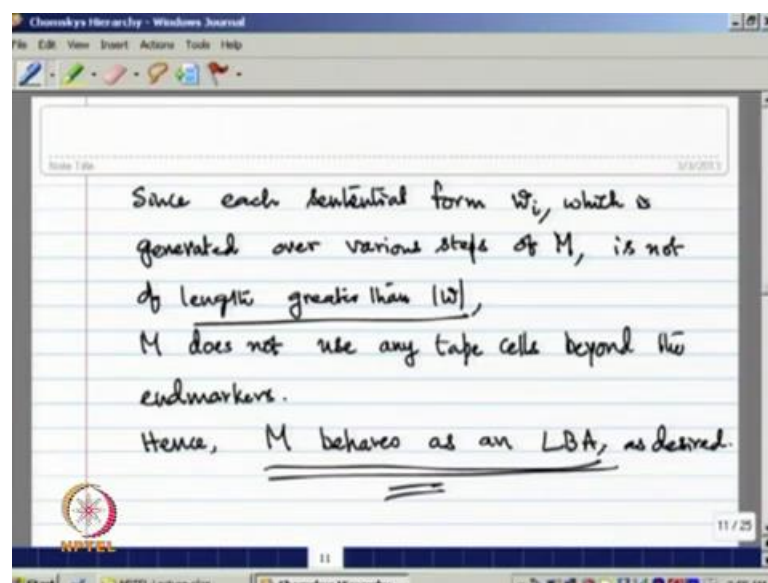 Chomskys Hierarchy - Windows Journal
File Edit View Insert Actions Tools Help
Note Title
3/3/2013
Since each sentential form wi, which is
generated over various steps of M, is not
of length greater than |w|,
M does not use any tape cells beyond the
endmarkers.
Hence, M behaves as an LBA, as desired.
NPTEL
11 / 25
11
Chomskys Hierarchy